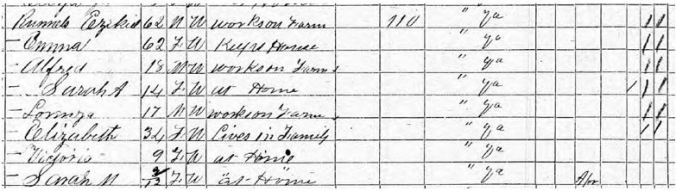 Runnels Ezekiel 62 M W works on Farm 110 " Ga 1 1
— Emma 62 F W Keeps House " Ga 1 1
— Alfred 18 M W works on Farm " Ga 1 1
— Sarah A 14 F W at Home " Ga 1 1 1
— Lorenza 17 M W works on Farm " Ga 1 1
— Elizabeth 32 F W Lives in Family " Ga 1 1
— Victoria 9 F W at Home " Ga
— Sarah M 2/12 F W at Home " Ga Apr